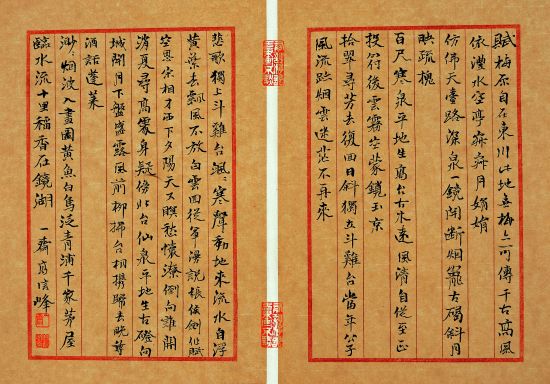 賦梅原自在東川此地嘉梅亦可傳千古高風
依澧水空亭森森月娟娟
仿佛天臺路深泉一鏡開斷烟籠古碣斜月
映疏槐
百尺寒泉平地生高台古木遠風清自從至正
投符後雲霧空蒙鏡玉京
拾翠尋芳去復回日斜獨立斗雞台當年公子
風流跡烟雲迷茫不再來
悲歌獨上斗雞台颯颯寒聲動地來流水自浮
黃葉去飄風不放白雲回從軍漫說張侯劍作賦
空思宋相才西下夕陽天又暝愁懷潦倒向誰開
消夏尋高處身疑傍北台仙泉平地生古磴向
城開月下盤盛露風前柳掃台相攜歸去晚尊
酒話蓬萊
渺渺烟波入畫圖黃魚白鳥泛青浦千家茅屋
臨水流十里稻香在鏡湖 一齋 峰